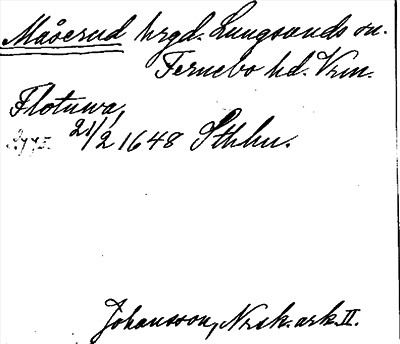 Måserud hrgd. Lungsunds sn.
Fernebo hd. Vrm.
Flotuwa,
21/2 1648 Sthlm.
Johansson, Norsk. ark. II.